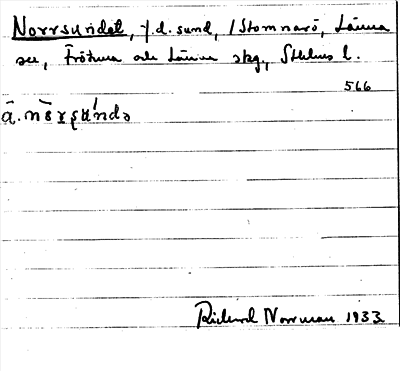 Norrsundet, f.d. sund, /Stomnarö, Länna
sn, Frötuna och Länna skg., Sthlms l.
566
å. nòrsúndə
Richard Norrman 1933